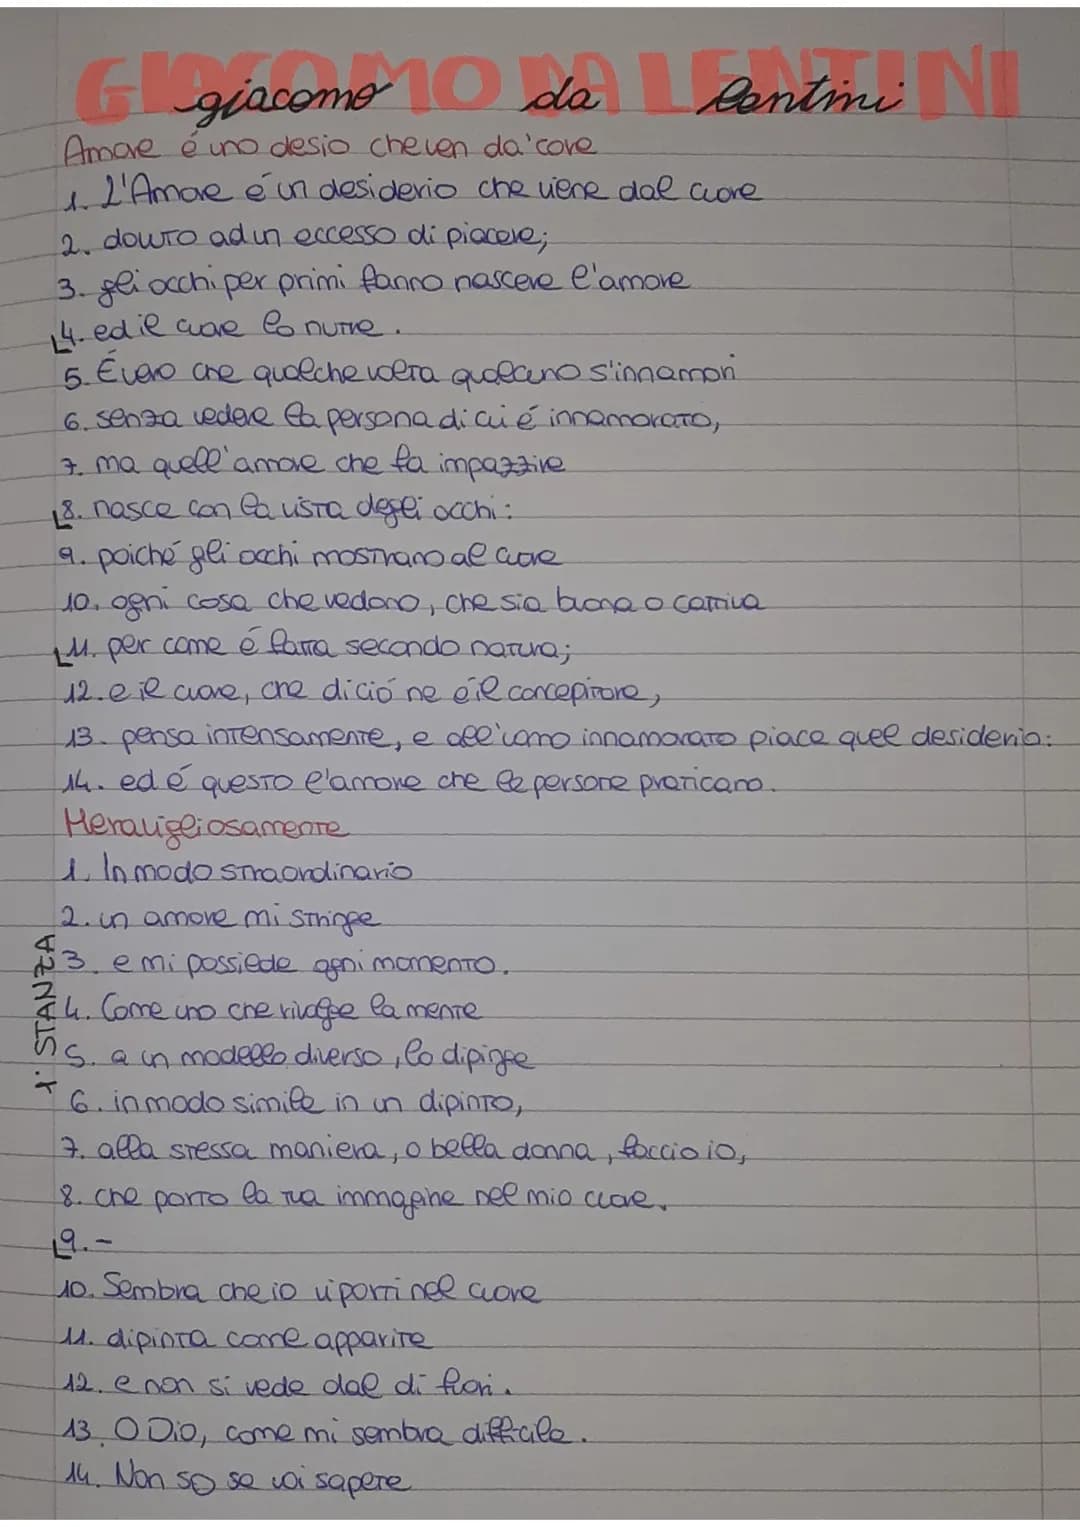 GIACOMO DA LENTINI
giacomo da lentini
Amore é uno desio che ven da' core
1. L'Amore é un desiderio che viene dal cuore
2. dovuto ad un eccesso di piacere;
3. gli occhi per primi fanno nascere l'amore
4. ed il cuore lo nutre.
5. É vero che qualche volta qualcuno s'innamori
6. senza vedere la persona di cui é innamorato,
7. ma quell'amore che fa impazzire
8. nasce con la vista degli occhi:
9. poiché gli occhi mostrano al cuore
10. ogni cosa che vedono, che sia buona o cattiva
11. per come é fatta secondo natura;
12. e il cuore, che di ció ne é il concepitore,
13. pensa intensamente, e all'uomo innamorato piace quel desiderio:
14. ed é questo l'amore che le persone praticano.
Meravigliosamente
1. In modo straordinario
2. un amore mi stringe
3. e mi possiede ogni momento.
4. Come uno che rivolge la mente
5. a un modello diverso, lo dipinge
6. in modo simile in un dipinto,
7. alla stessa maniera, o bella donna, faccio io,
8. che porto la tua immagine nel mio cuore.
9. -
10. Sembra che io vi porti nel cuore
11. dipinta come apparite
12. e non si vede dal di fuori.
13. O Dio, come mi sembra difficile.
14. Non so se voi sapete
1. STANZA